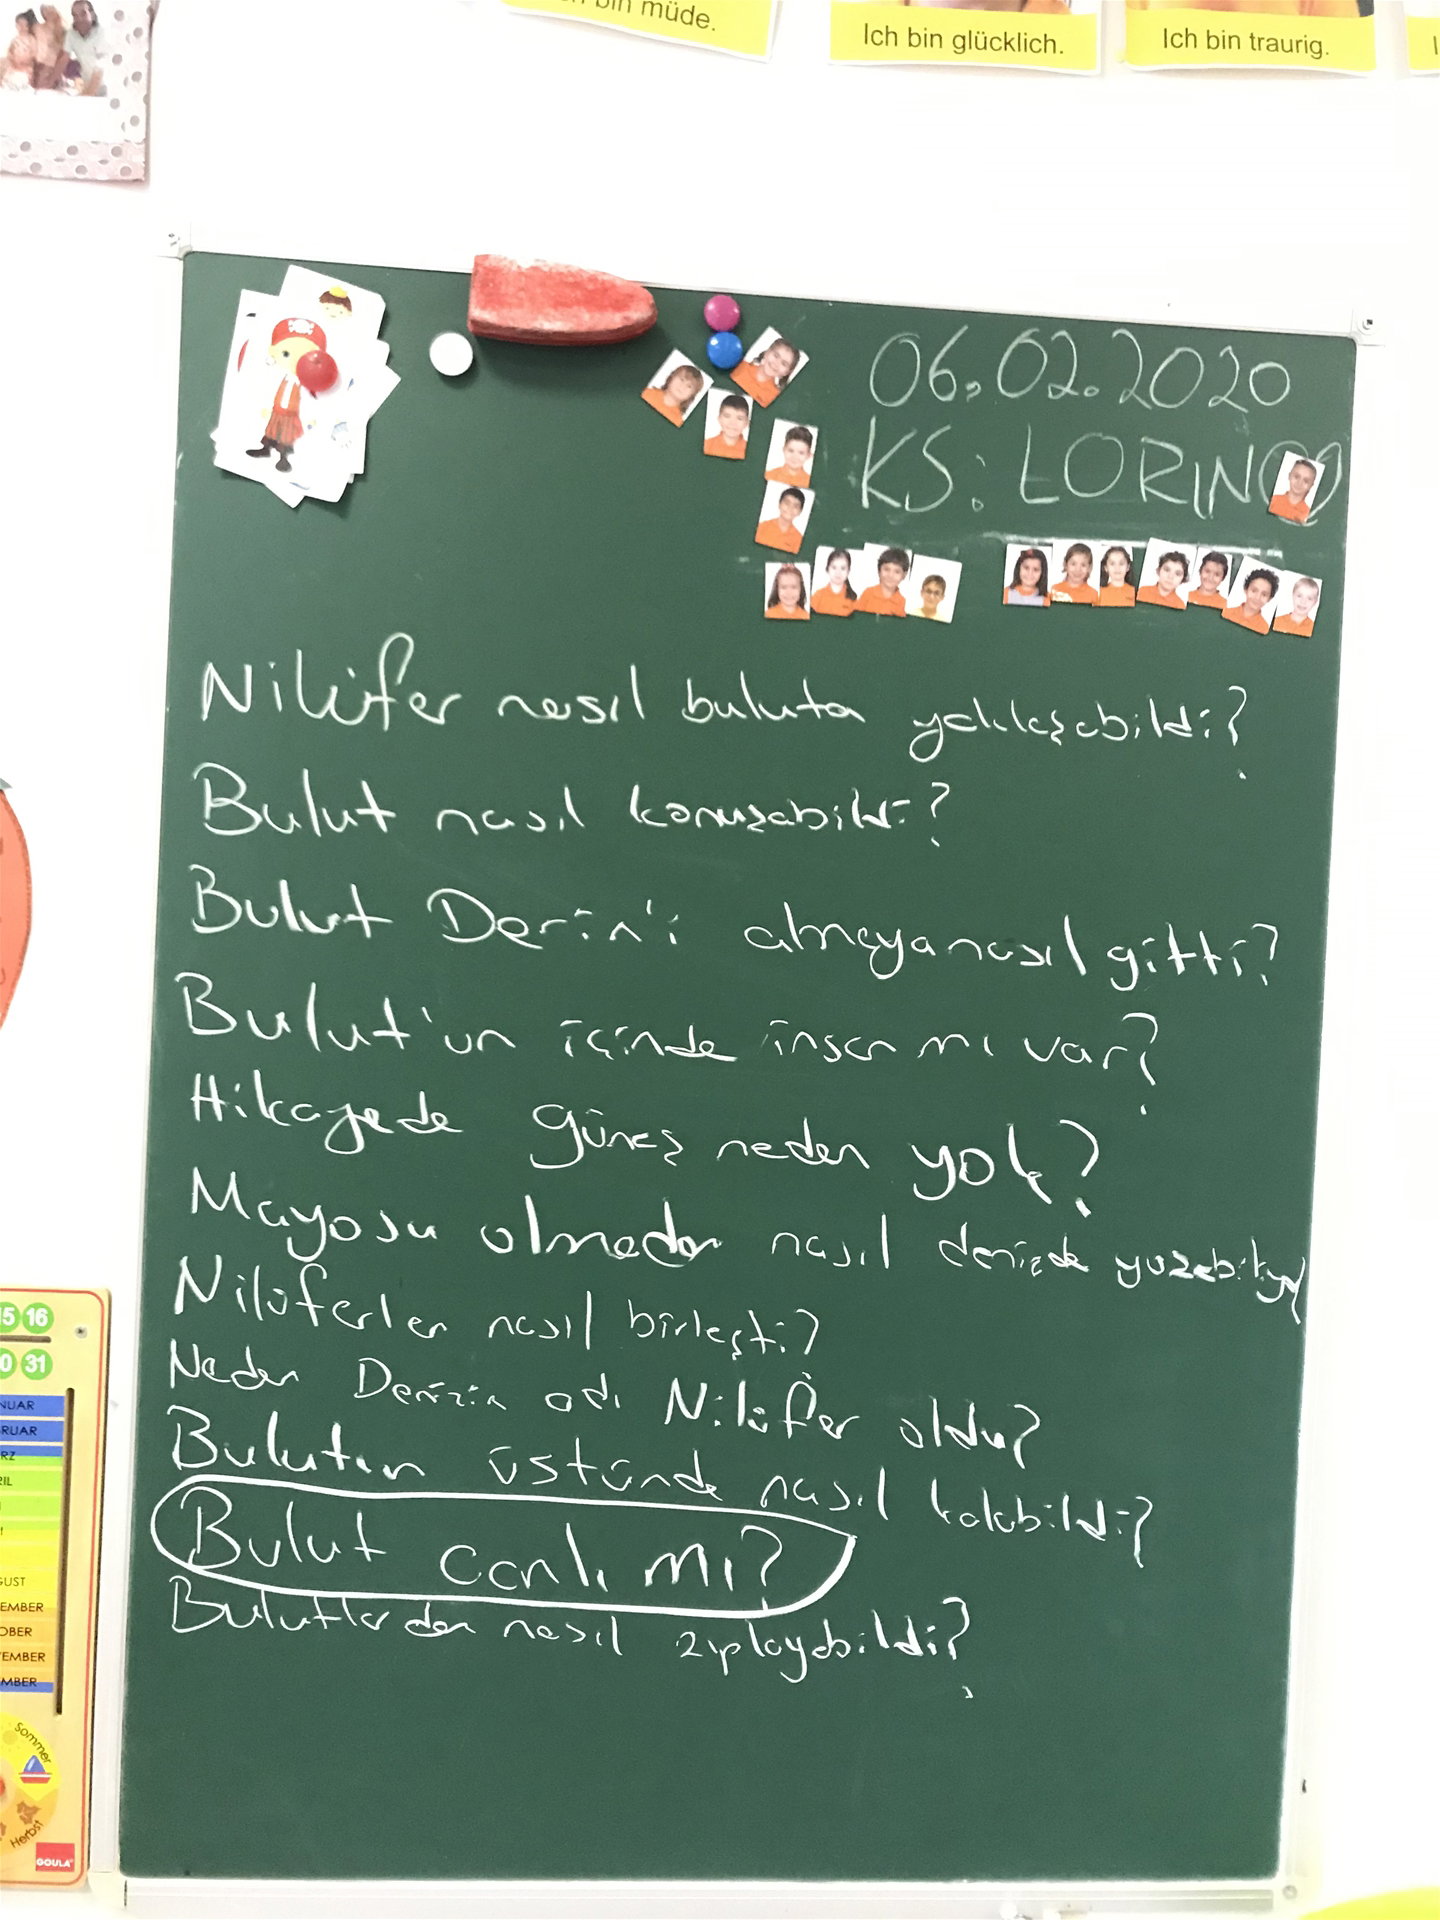 bin müde.
Ich bin glücklich.
Ich bin traurig.
06.02.2020
KS: LORIN
Nilüfer nasıl buluta yaklaşabildi?
Bulut nasıl konuşabildi?
Bulut Derin'i almaya nasıl gitti?
Bulut'un içinde insan mı var?
Hikayede güneş neden yok?
Mayosu olmadan nasıl denizde yüzebiliyor
Nilüferler nasıl birleşti?
Neden Denizin adı Nilüfer oldu?
Bulutun üstünde nasıl kalabildi?
Bulut canlı mı?
Bulutlardan nasıl zıplayabildi?
15 16
30 31
NUAR
RUAR
RZ
RIL
GUST
EMBER
OBER
EMBER
MBER
Sommer
Herbst
GOULA